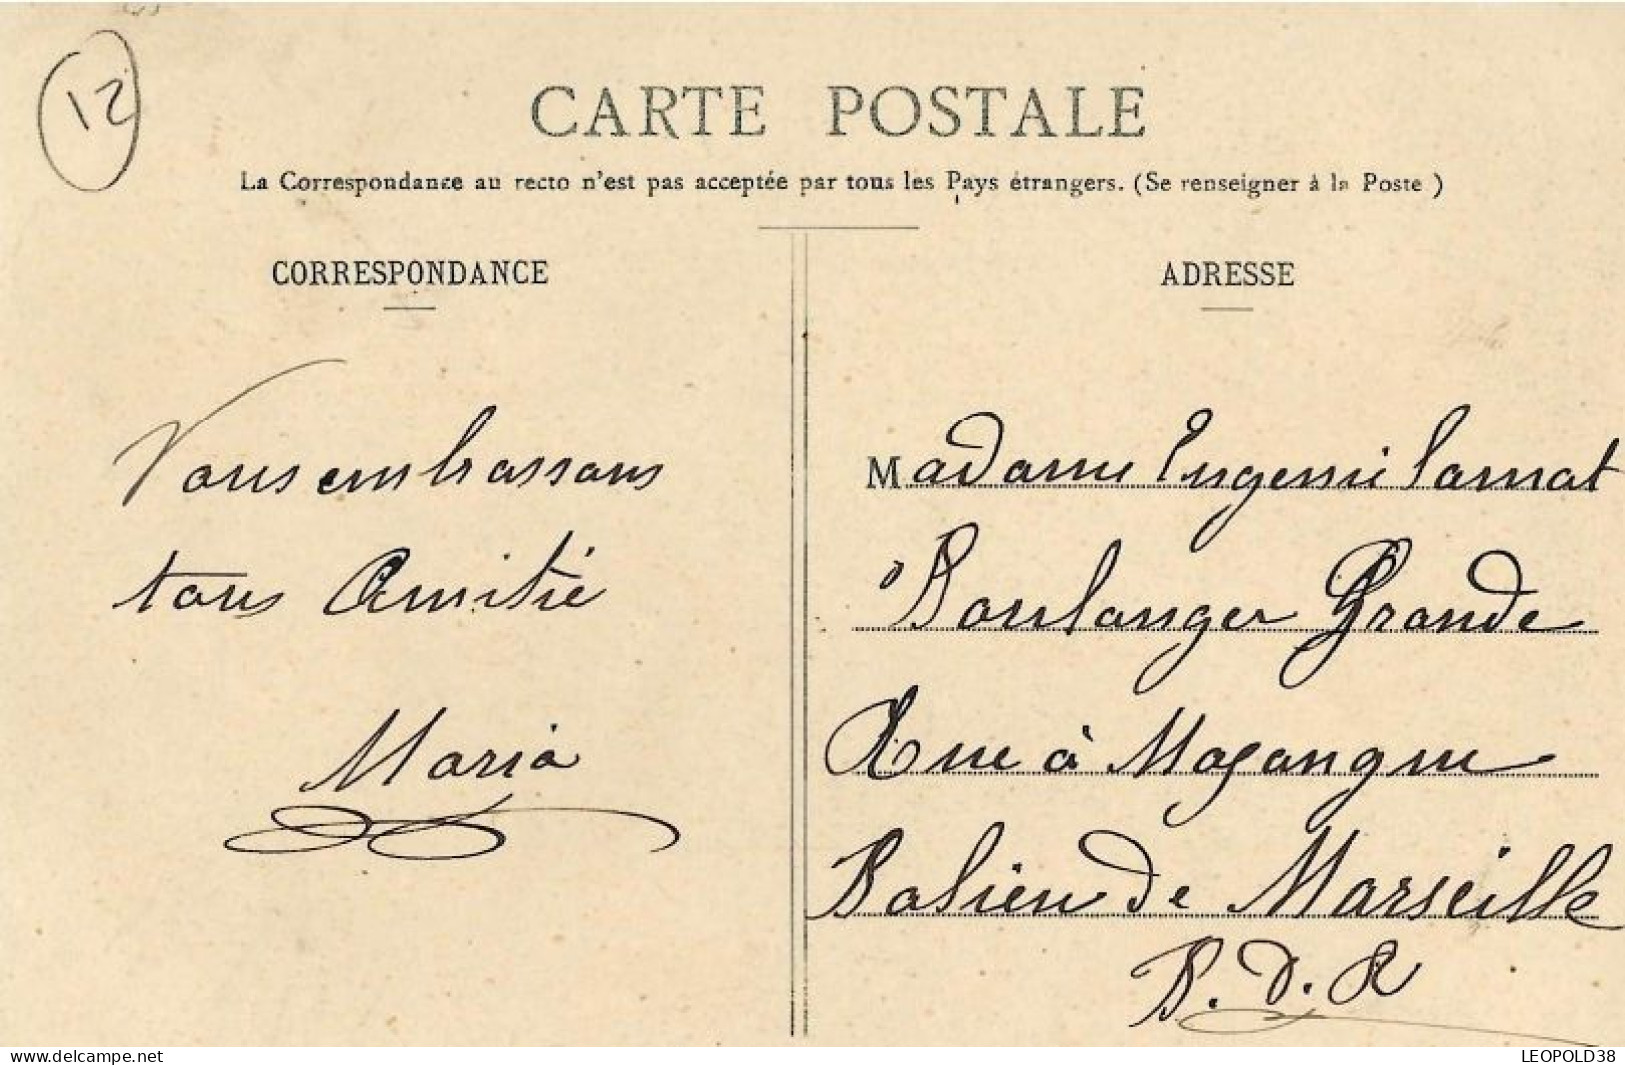 12
CARTE POSTALE
La Correspondance au recto n'est pas acceptée par tous les Pays étrangers. (Se renseigner à la Poste)
CORRESPONDANCE
Vous embrassons
tous Amitié
Maria
ADRESSE
Madame Eugenie
Boulanger Grande
Rue à
de Marseille
B.D.R
delcampe.net
LEOPOLD38